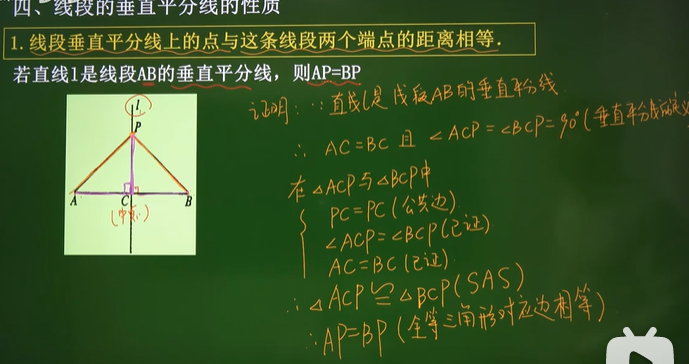 四、线段的垂直平分线的性质
1.线段垂直平分线上的点与这条线段两个端点的距离相等.
若直线l是线段AB的垂直平分线，则AP=BP
l
P
A C B
(中点)
证明：∵直线l是线段AB的垂直平分线
∴ AC=BC 且 ∠ACP=∠BCP=90°(垂直平分线的定义
在△ACP与△BCP中
PC=PC(公共边)
∠ACP=∠BCP(已证)
AC=BC(已证)
∴△ACP≌△BCP(SAS)
∴AP=BP(全等三角形对应边相等)